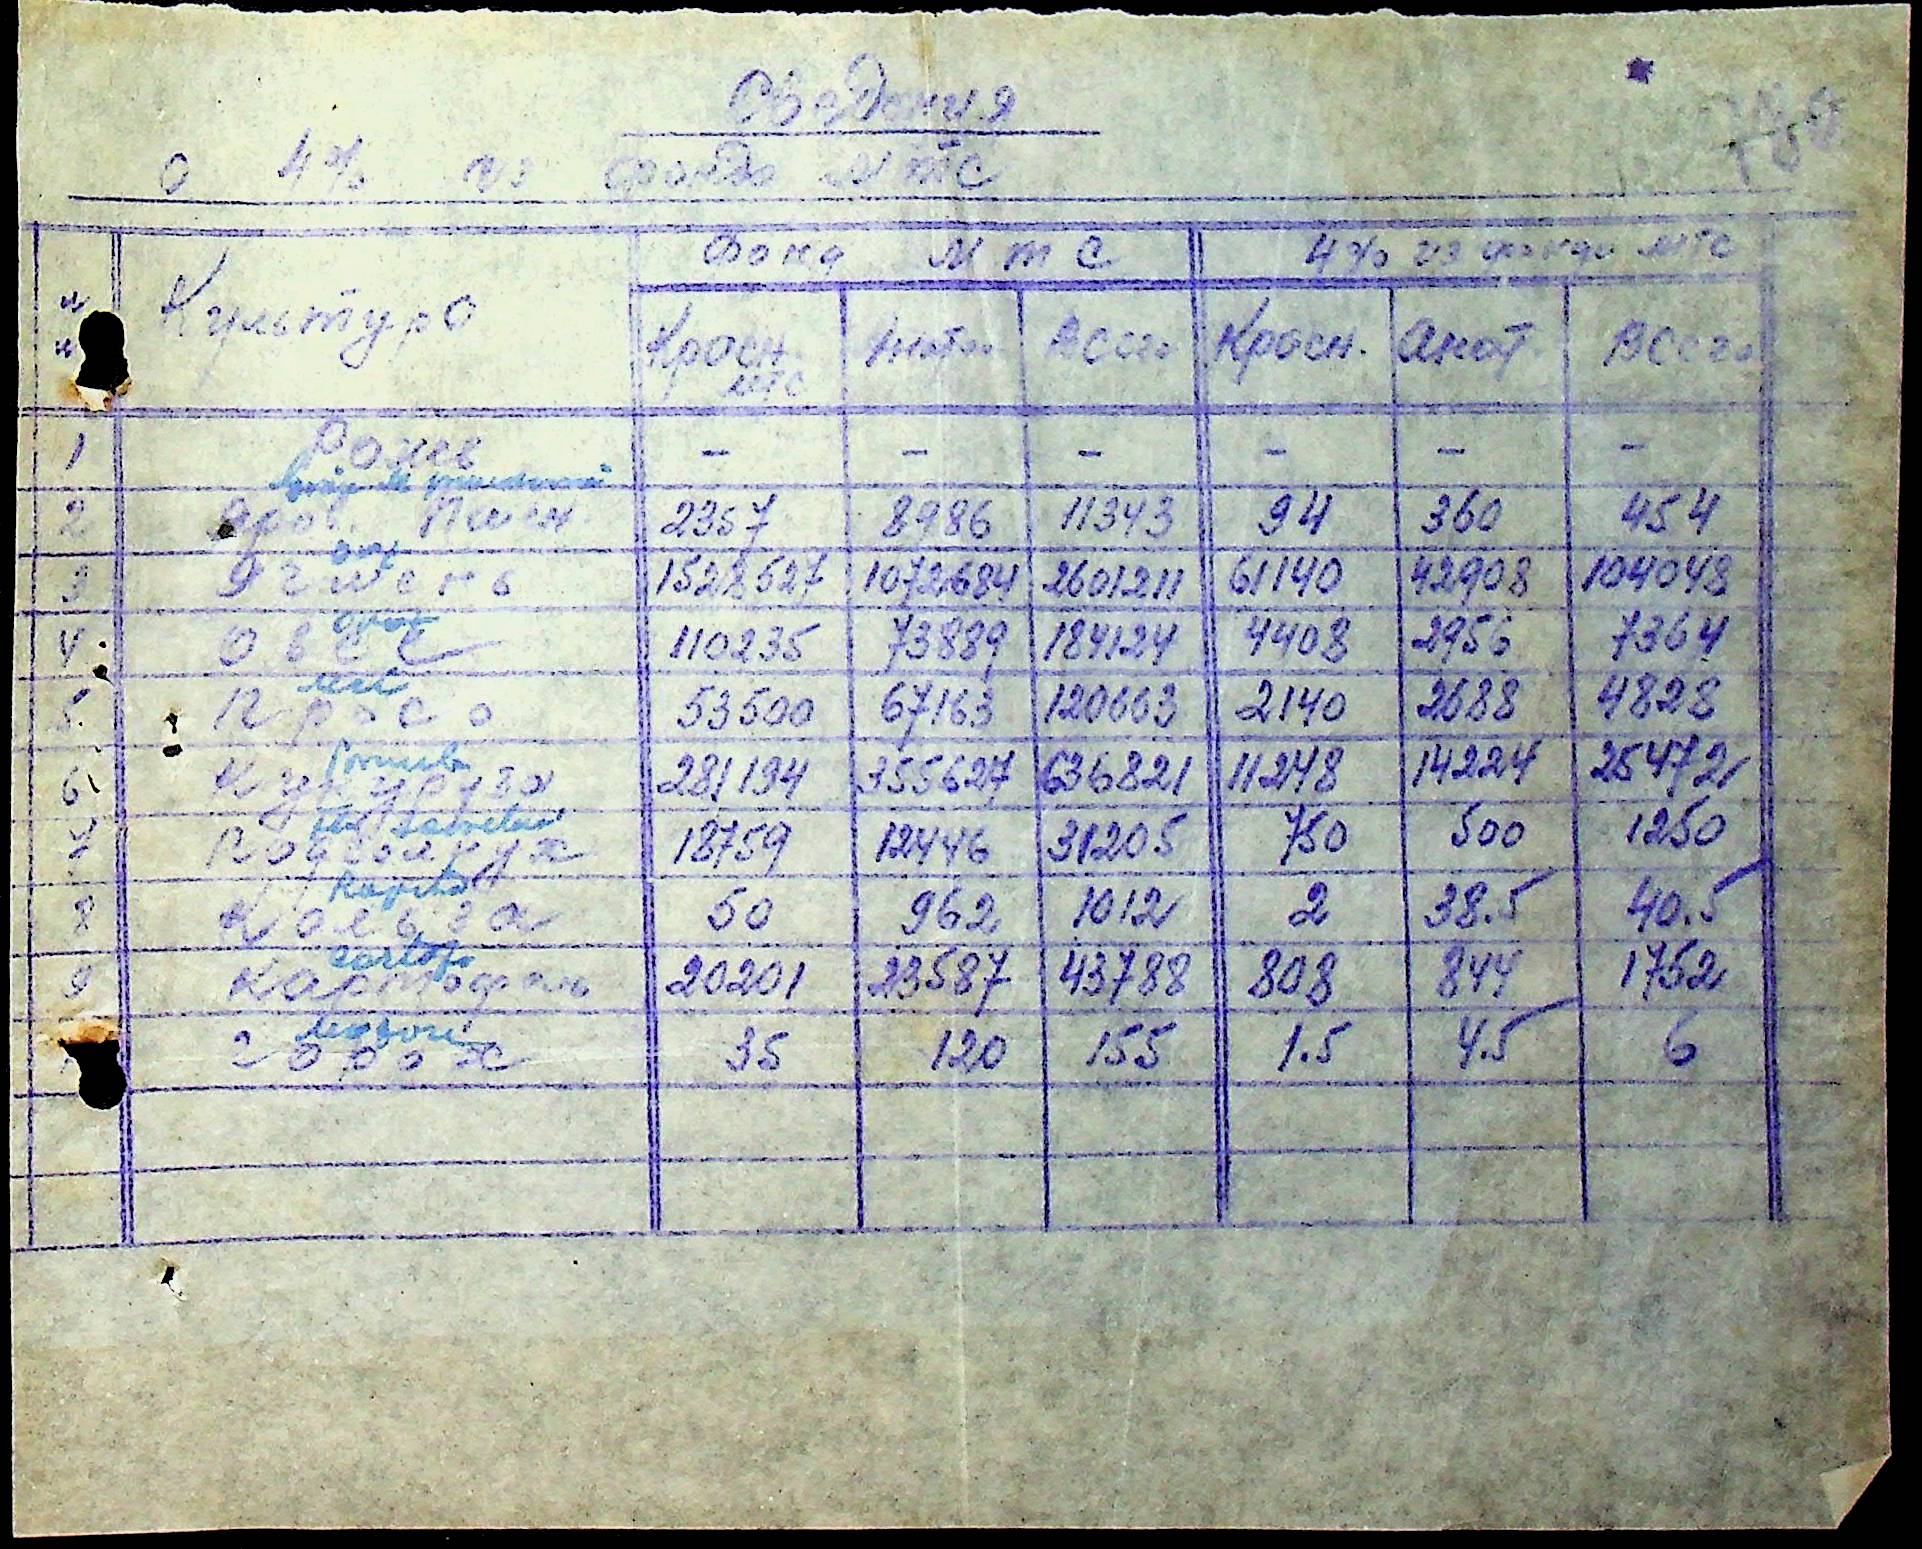 Сведения
о 4% из фонда МТС
Культура
Фонд МТС
4% из фонда МТС
Красн. МТС
Анат.
Всего
Красн.
Анат.
Всего
1 Рожь – – – – – –
2 Яров. Пшен. 2357 8986 11343 94 360 454
orz
3 Ячмень 1528527 1072684 2601211 61140 42908 104048
ovăz
4 Овес 110235 73889 184124 4408 2956 7364
mei
5 Просо 53500 67163 120663 2140 2688 4828
Porumb
6 Кукуруза 281194 355627 636821 11248 14224 25472
fl. soarelui
7 Подсолнух 18759 12446 31205 750 500 1250
Rapita
8 Кольза 50 962 1012 2 38.5 40.5
cartofi
9 Картофель 20201 23587 43788 808 844 1752
Горох 35 120 155 1.5 4.5 6